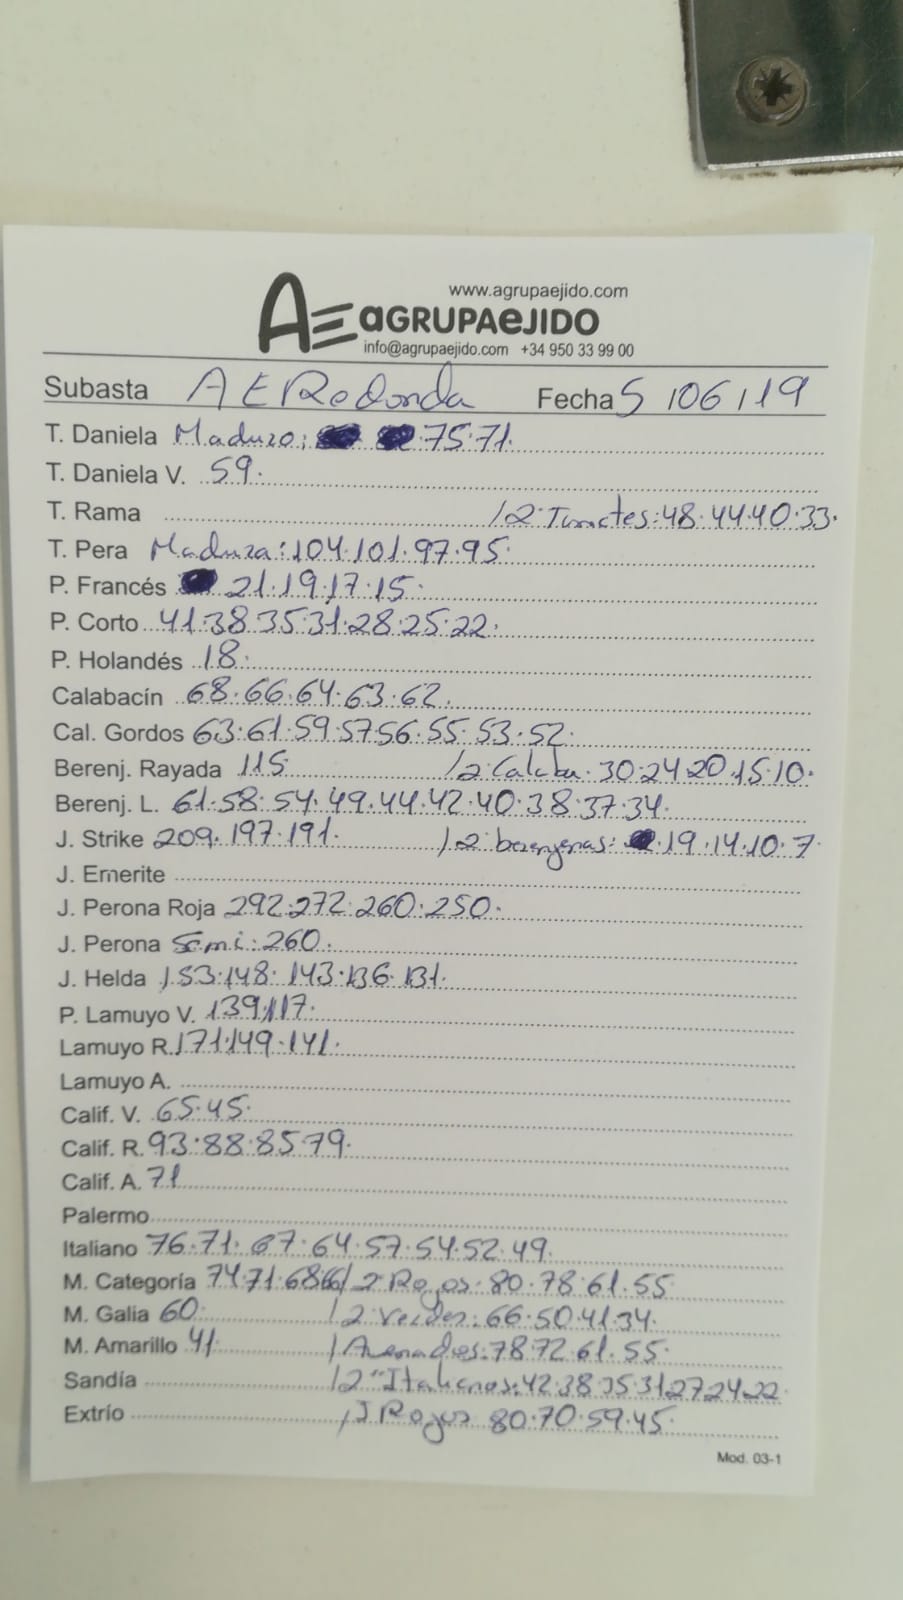 www.agrupaejido.com
AE aGRUPAeJIDO
info@agrupaejido.com +34 950 33 99 00
Subasta AE Redonda Fecha 5 / 06 / 19
T. Daniela Maduro: 75.71.
T. Daniela V. 59.
T. Rama /2 : 48.44.40.33.
T. Pera Madura: 104.101.97.95.
P. Francés 21.19.17.15.
P. Corto 41.38.35.31.28.25.22.
P. Holandés 18.
Calabacín 68.66.64.63.62.
Cal. Gordos 63.61.59.57.56.55.53.52.
Berenj. Rayada 115 /2 Calaba. 30.24.20.15.10.
Berenj. L. 61.58.54.49.44.42.40.38.37.34.
J. Strike 209.197.191. /2 berenjenas: 19.14.10.7.
J. Emerite
J. Perona Roja 292.272.260.250.
J. Perona Semi: 260.
J. Helda 153.148.143.136.131.
P. Lamuyo V. 139.117.
Lamuyo R. 171.149.141.
Lamuyo A.
Calif. V. 65.45.
Calif. R. 93.88.85.79.
Calif. A. 71
Palermo
Italiano 76.71.67.64.57.54.52.49.
M. Categoría 74.71.68.66 / 2 Rojos: 80.78.61.55.
M. Galia 60. /2 Verdes: 66.50.41.34.
M. Amarillo 41. / : 78.72.61.55.
Sandía /2ª Italianos: 42.38.35.31.27.24.22.
Extrío / J Rojos 80.70.59.45.
Mod. 03-1